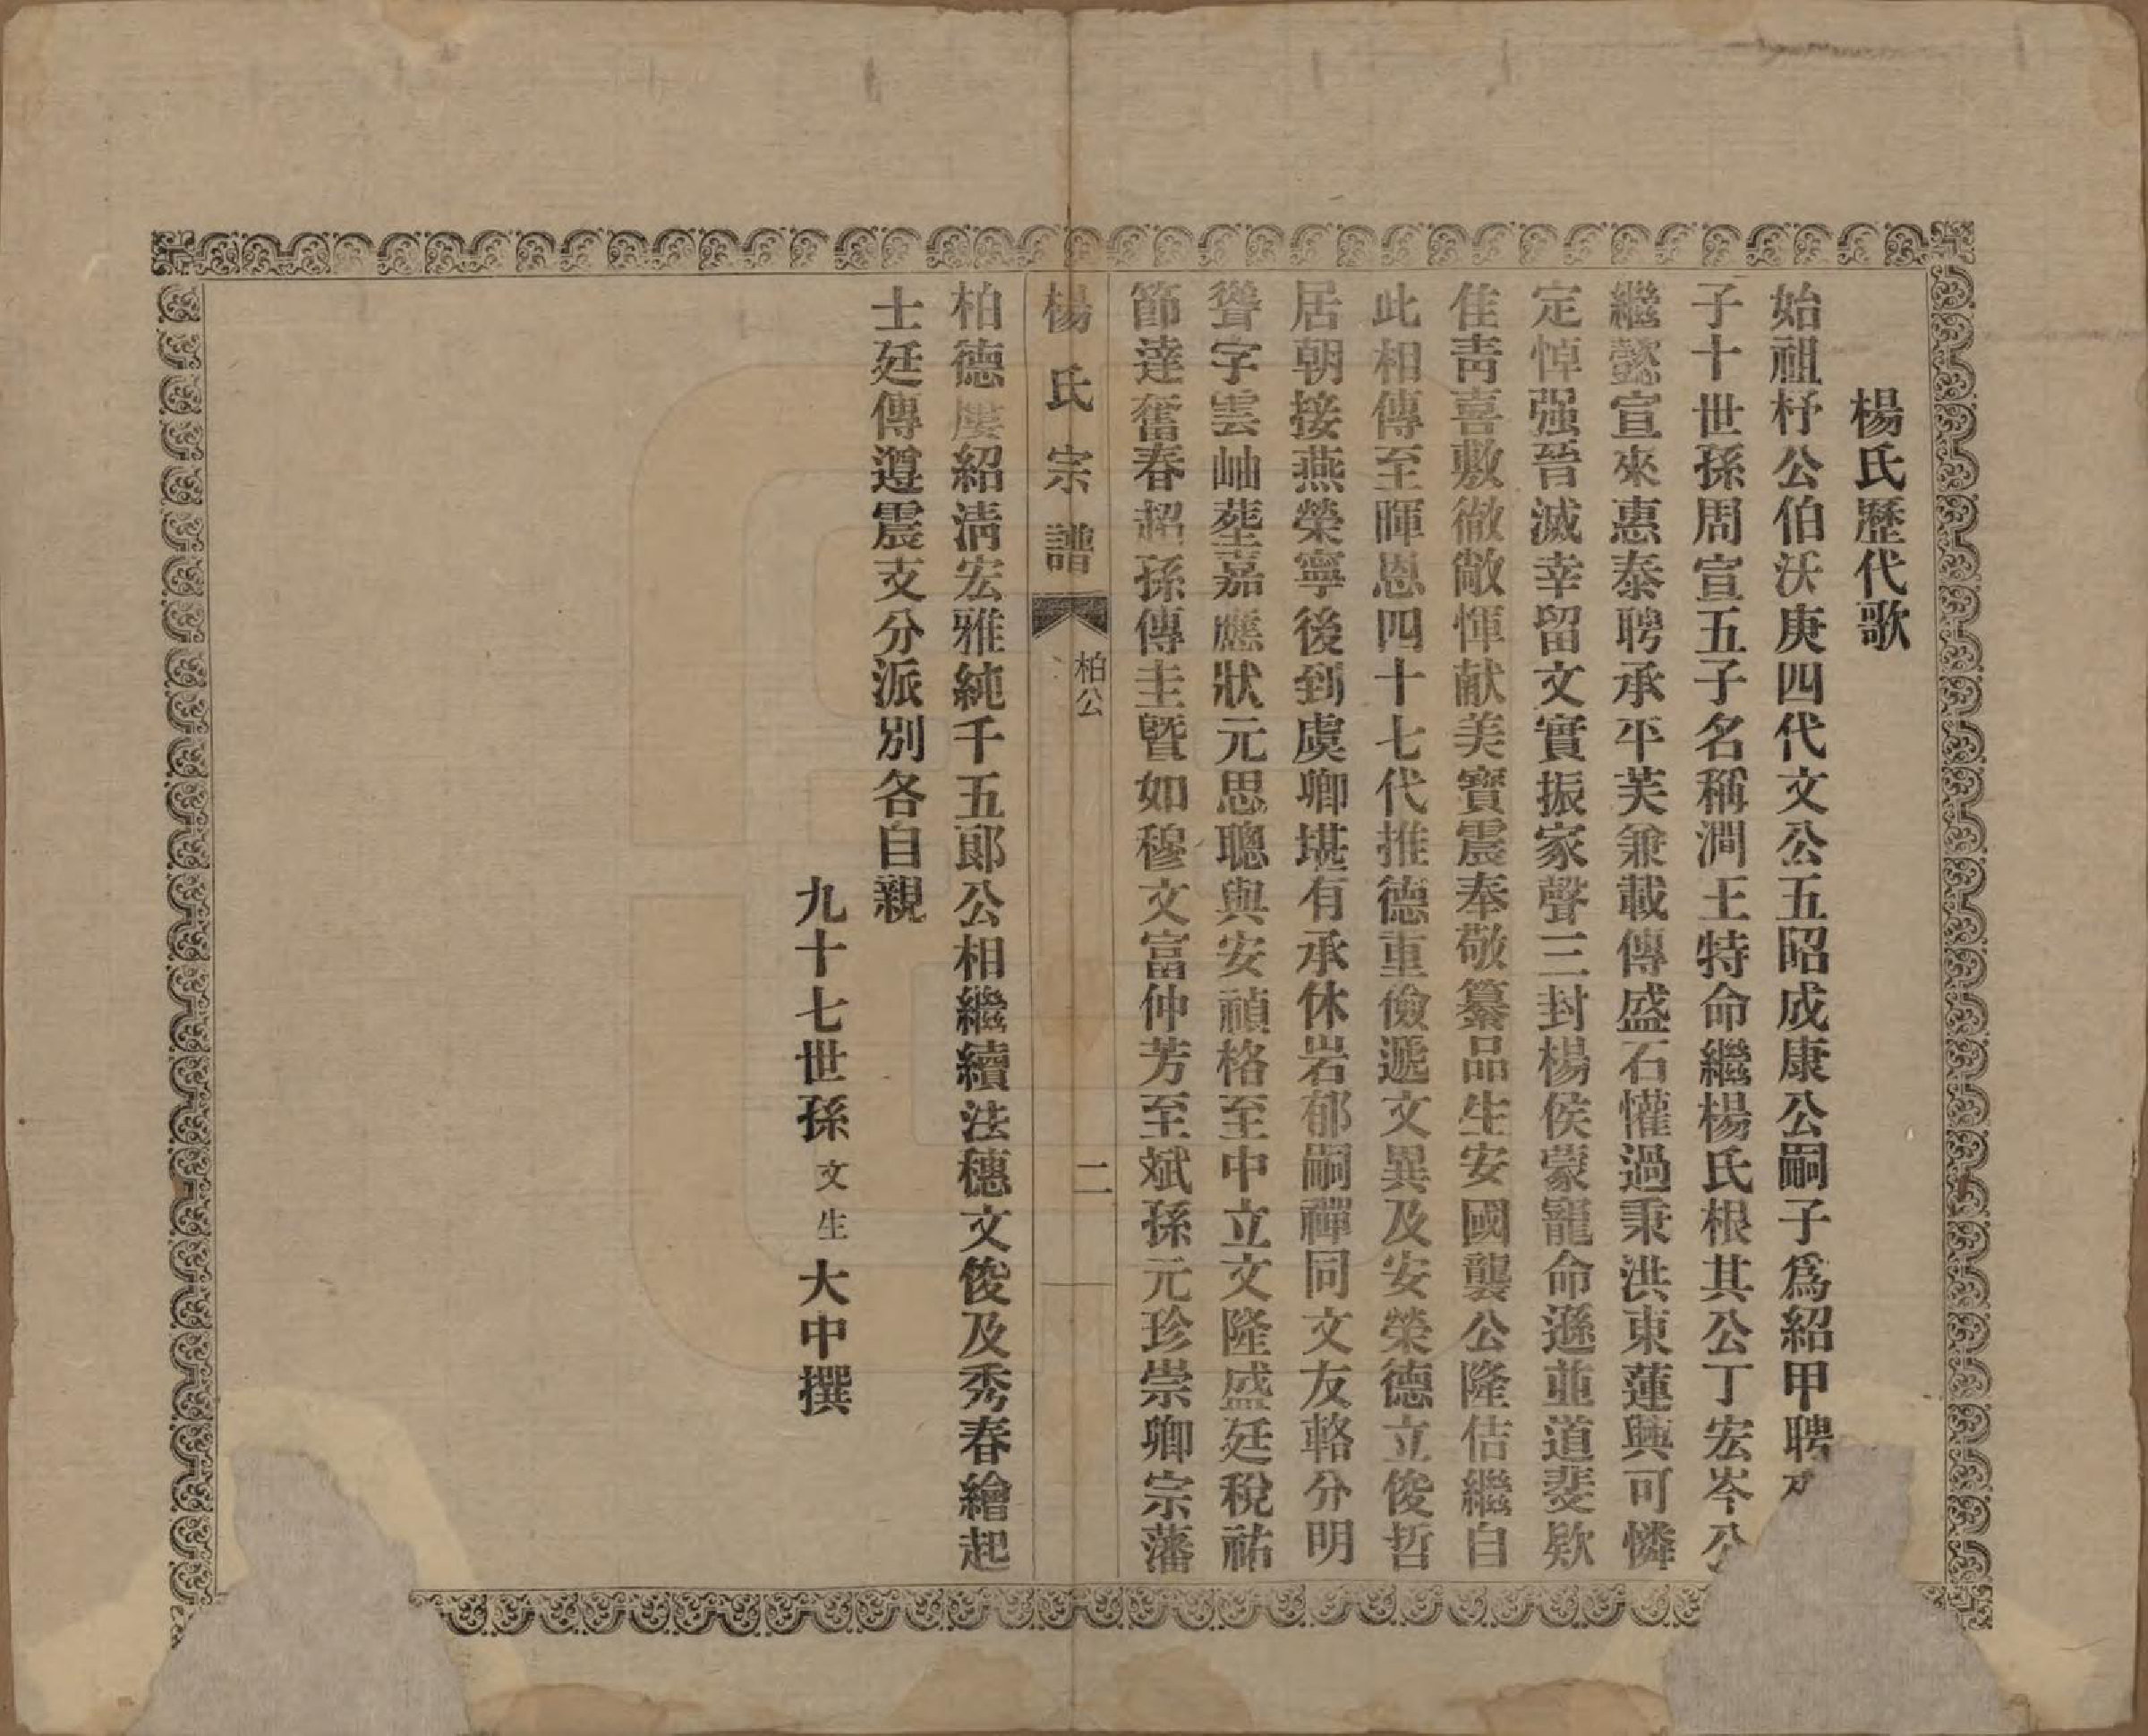 楊氏歷代歌
始祖杼公伯沃庚四代文公五昭成康公嗣子爲紹甲聘
子十世孫周宣五子名稱澗王特命繼楊氏根其公丁宏岑公
繼懿宣來惠泰聘承平芙兼載傳盛石懽過秉洪東蓮興可憐
定悼强晉滅幸留文實振家聲三封楊侯蒙寵命遜並道斐欵
佳靑喜敷徹敞惲献美寳震奉敬纂品生安國襲公隆佶繼自
此相傳至暉恩四十七代推德重儉遞文異及安榮德立俊哲
居朝接燕榮寧後到虞卿堪有承休岩郁嗣禪同文友輅分明
聳字雲岫塟嘉應狀元思聰與安禎格至中立文隆盛廷稅祐
節達奮春超孫傳圭暨如穆文富仲芳至斌孫元珍崇卿宗藩
楊氏宗譜 柏公 二
柏德屢紹淸宏雅純千五郎公相繼續法穗文俊及秀春繪起
士廷傳遵震支分派別各自親
九十七世孫文生大中撰